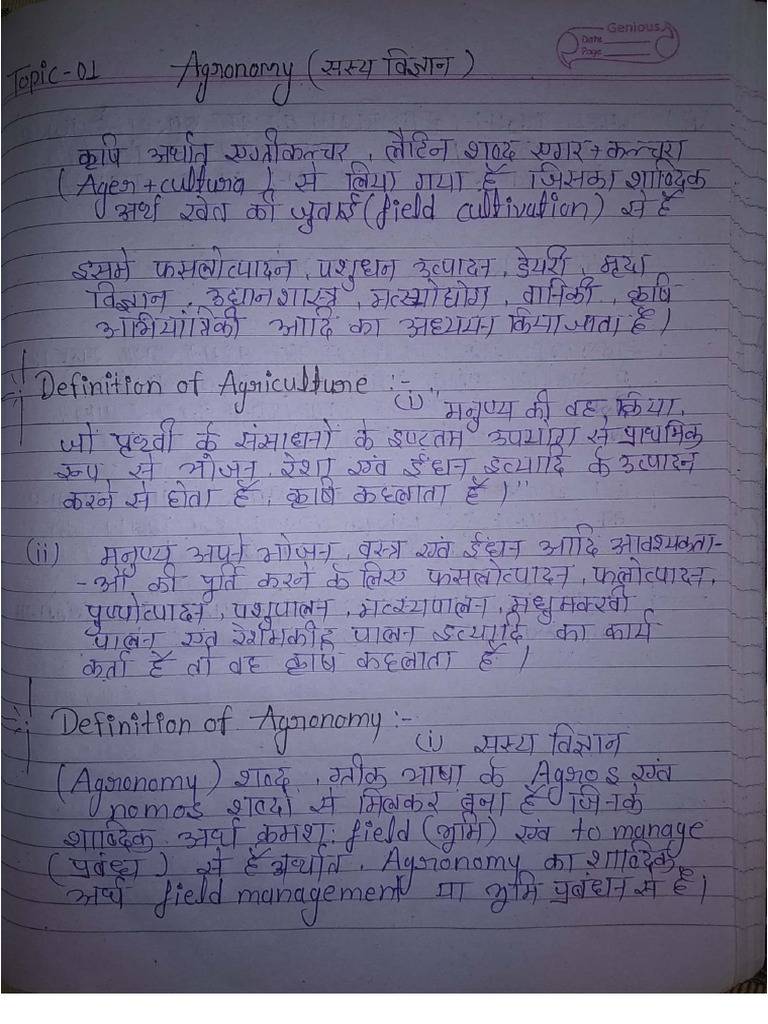 Genious
Date
Page
Topic-01 Agronomy (सस्य विज्ञान)
कृषि अर्थात एग्रीकल्चर, लैटिन शब्द एगर+कल्चरा
(Ager+cultura) से लिया गया है जिसका शाब्दिक
अर्थ खेत की जुताई (field cultivation) से है
इसमे फसलोत्पादन, पशुधन उत्पादन, डेयरी, मृदा
विज्ञान, उद्यानशास्त्र, मत्स्योद्योग, वानिकी, कृषि
अभियांत्रिकी आदि का अध्ययन किया जाता है।
Definition of Agriculture :-
(i) "मनुष्य की वह क्रिया,
जो पृथ्वी के संसाधनों के इष्टतम उपयोग से प्राथमिक
रूप से भोजन, रेशा एवं ईंधन इत्यादि के उत्पादन
करने से होता है, कृषि कहलाता है।"
(ii) मनुष्य अपने भोजन, वस्त्र एवं ईंधन आदि आवश्यकता-
-ओं की पूर्ति करने के लिए फसलोत्पादन, फलोत्पादन,
पुष्पोत्पादन, पशुपालन, मत्स्यपालन, मधुमक्खी
पालन एवं रेशमकीट पालन इत्यादि का कार्य
कर्ता है तो वह कृषि कहलाता है।
Definition of Agronomy :-
(i) सस्य विज्ञान
(Agronomy) शब्द, ग्रीक भाषा के Agros एवं
nomos शब्दों से मिलकर बना है जिनके
शाब्दिक अर्थ क्रमशः field (भूमि) एवं to manage
(प्रबंध) से है अर्थात, Agronomy का शाब्दिक
अर्थ field management या भूमि प्रबंधन से है।